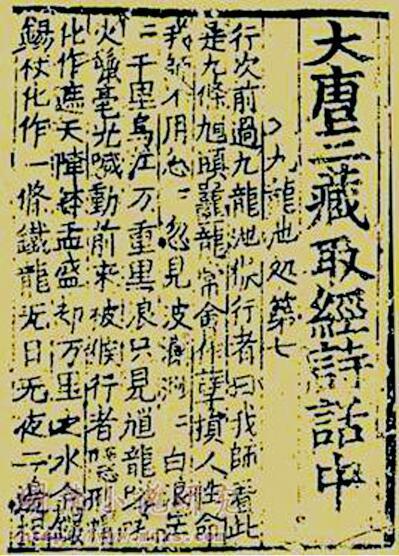 大唐三藏取經詩話中
入九龍池処第七
行次前過九龍池猴行者曰我師看此
是九條馗頭鼉龍常會作孽損人性命
我師不用忩〻忽見波瀾〻白浪茫
〻千里烏江万重黑浪只見馗龍哮吼
火鬣毫光喊動前來被猴行者隱形帽
化作遮天陣鉢盂盛却万里之水金鐶
錫杖化作一條鐵龍无日无夜二邊相